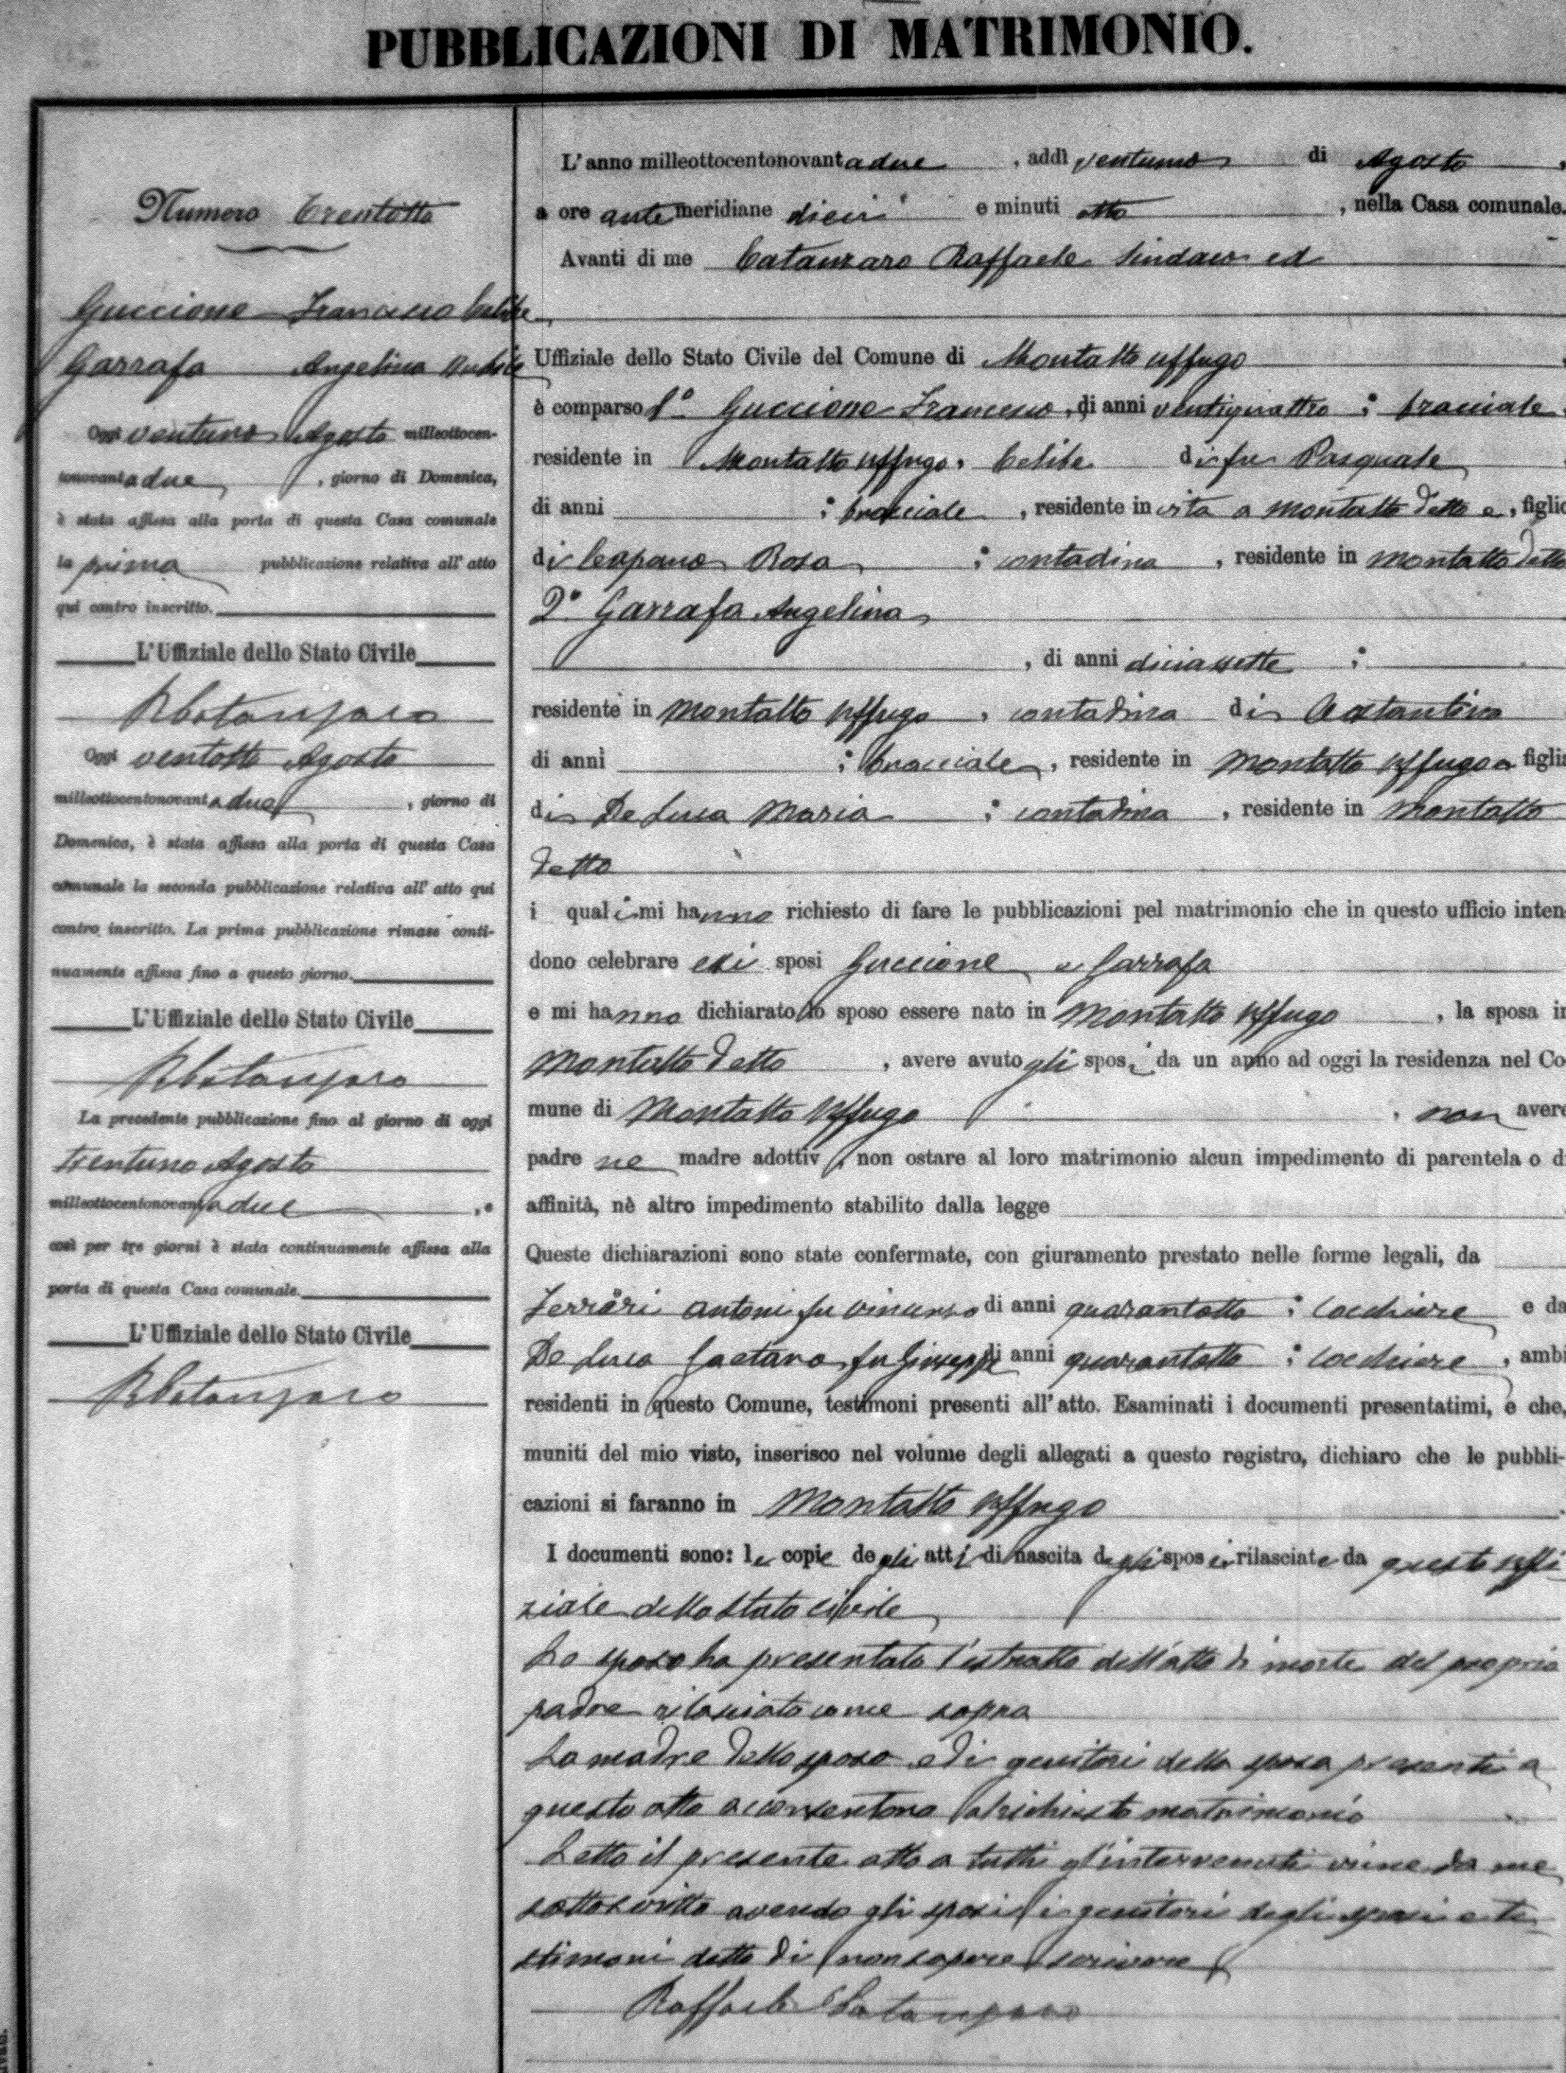 PUBBLICAZIONI DI MATRIMONIO.
Numero Trentotto
Guccione Francesco Celibe
Garrafa Angelina Nubile
Oggi ventuno Agosto milleottocen-
tonovantadue, giorno di Domenica,
è stata affissa alla porta di questa Casa comunale
la prima pubblicazione relativa all'atto
qui contro inscritto.
L'Uffiziale dello Stato Civile
RCatanzaro
Oggi ventotto Agosto
milleottocentonovantadue, giorno di
Domenica, è stata affissa alla porta di questa Casa
comunale la seconda pubblicazione relativa all'atto qui
contro inscritto. La prima pubblicazione rimase conti-
nuamente affissa fino a questo giorno.
L'Uffiziale dello Stato Civile
RCatanzaro
La precedente pubblicazione fino al giorno di oggi
trentuno Agosto
milleottocentonovantadue, e
così per tre giorni è stata continuamente affissa alla
porta di questa Casa comunale.
L'Uffiziale dello Stato Civile
RCatanzaro
L'anno milleottocentonovantadue, addì ventuno di Agosto,
a ore antemeridiane dieci e minuti otto, nella Casa comunale.
Avanti di me Catanzaro Raffaele Sindaco ed
Uffiziale dello Stato Civile del Comune di Montalto Uffugo
è comparso 1° Guccione Francesco, di anni ventiquattro; bracciale,
residente in Montalto Uffugo, Celibe di fu Pasquale
di anni ; bracciale, residente in vita a Montalto detto e, figlio
di Rosa ; contadina, residente in Montalto detto
2° Garrafa Angelina
, di anni diciassette ;
residente in Montalto Uffugo, contadina di Costantino
di anni ; bracciale, residente in Montalto Uffugo e figlia
di De Luca Maria ; contadina, residente in Montalto
detto
i quali mi hanno richiesto di fare le pubblicazioni pel matrimonio che in questo ufficio inten-
dono celebrare essi sposi Guccione e Garrafa
e mi hanno dichiarato lo sposo essere nato in Montalto Uffugo, la sposa in
Montalto detto, avere avuto gli sposi da un anno ad oggi la residenza nel Co-
mune di Montalto Uffugo, non avere
padre ne madre adottiv, non ostare al loro matrimonio alcun impedimento di parentela o d
affinità, nè altro impedimento stabilito dalla legge
Queste dichiarazioni sono state confermate, con giuramento prestato nelle forme legali, da
Ferrari Antoni fu Vincenzo di anni quarantotto; Cocchiere e da
De Luca Gaetano fu Giuseppe di anni quarantotto; Cocchiere, ambi
residenti in questo Comune, testimoni presenti all'atto. Esaminati i documenti presentatimi, e che,
muniti del mio visto, inserisco nel volume degli allegati a questo registro, dichiaro che le pubbli-
cazioni si faranno in Montalto Uffugo.
I documenti sono: le copie degli atti di nascita degli sposi rilasciate da questo Uffi
ziale dello Stato Civile
Lo sposo ha presentato l'estratto dell'atto di morte del proprio
padre rilasciato come sopra
La madre dello sposo ed i genitori della sposa presenti a
questo atto acconsentono al richiesto matrimonio
Letto il presente atto a tutti gl'intervenuti viene da me
sottoscritto avendo gli sposi i genitori degli sposi e te
stimoni detto di non sapere scrivere
Raffaele Catanzaro